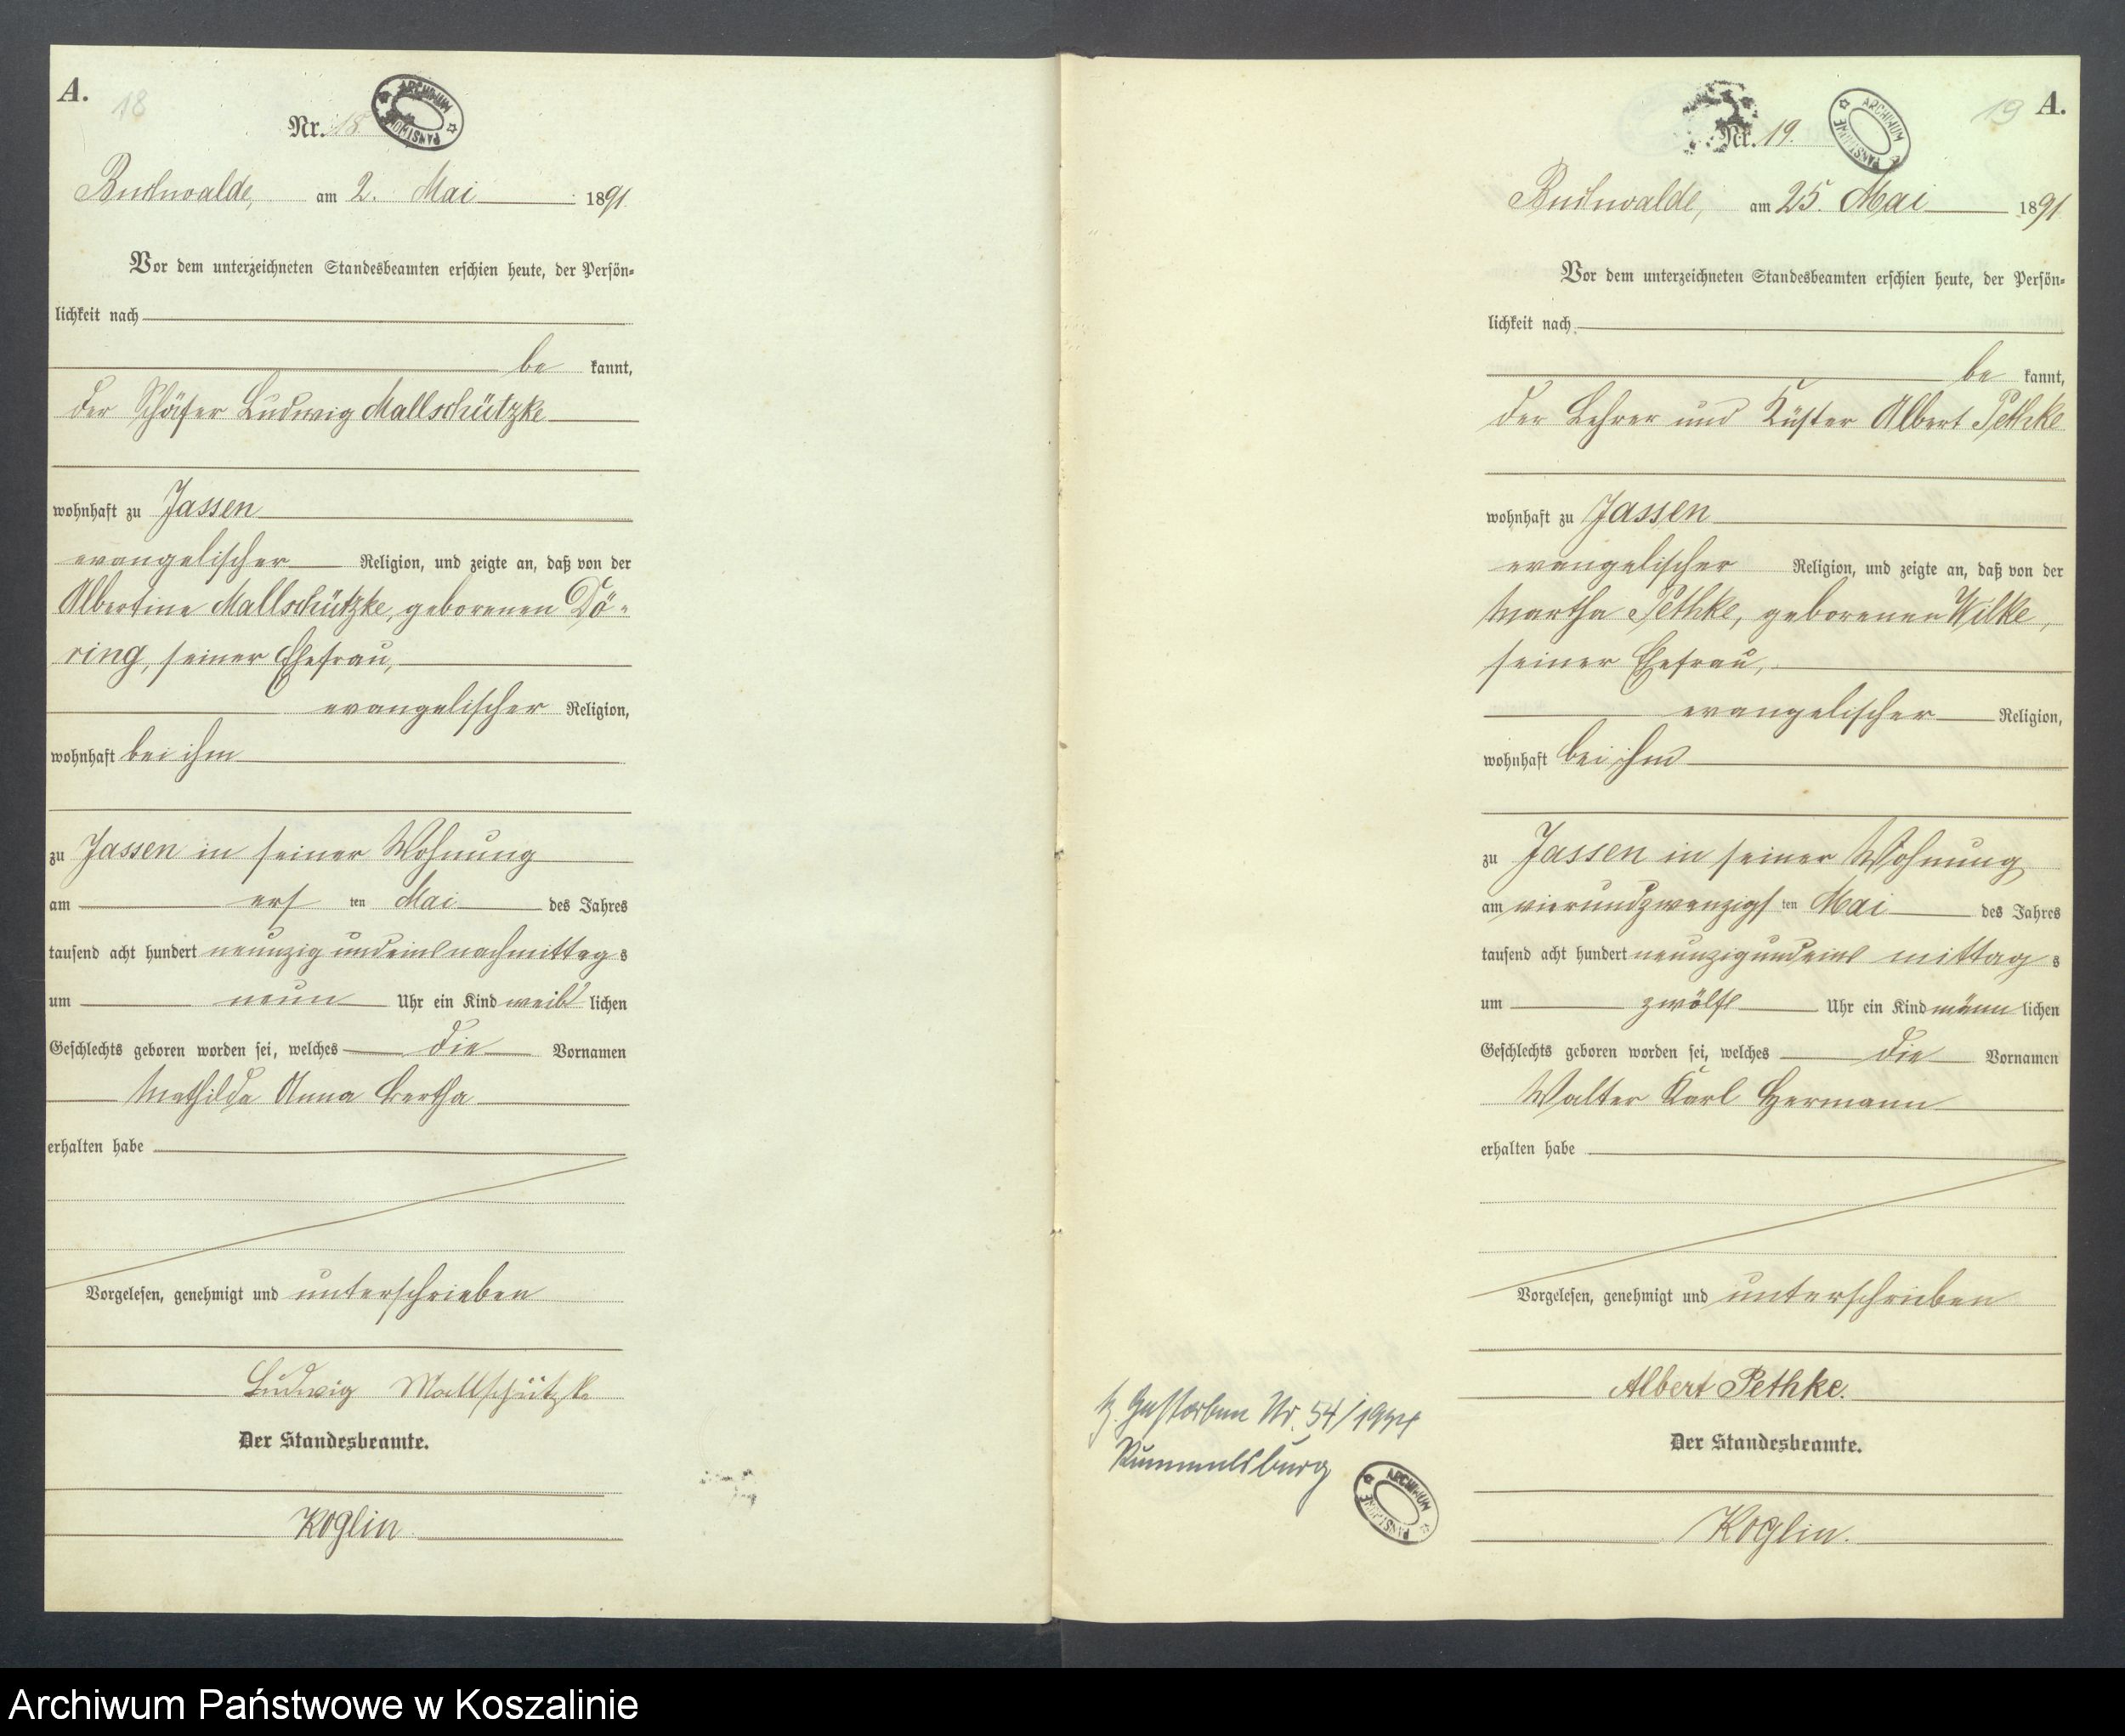 A.
18
Nr. 18.
ARCHIWUM PAŃSTWOWE
Buchwalde, am 2. Mai 1891
Vor dem unterzeichneten Standesbeamten erschien heute, der Persön-
lichkeit nach
be kannt,
der Schäfer Ludwig Mallschützke
wohnhaft zu Jassen
evangelischer Religion, und zeigte an, daß von der
Albertine Mallschützke, geborenen Dö-
ring, seiner Ehefrau,
evangelischer Religion,
wohnhaft bei ihm
zu Jassen in seiner Wohnung
am ers ten Mai des Jahres
tausend acht hundert neunzig und eins nachmittag s
um neun Uhr ein Kind weib lichen
Geschlechts geboren worden sei, welches die Vornamen
Mathilde Anna Bertha
erhalten habe
Vorgelesen, genehmigt und unterschrieben
Ludwig Mallschützke
Der Standesbeamte.
Koglin
19 A.
Nr. 19.
ARCHIWUM PAŃSTWOWE
Buchwalde, am 25. Mai 1891
Vor dem unterzeichneten Standesbeamten erschien heute, der Persön-
lichkeit nach
be kannt,
der Lehrer und Küster Albert Pethke
wohnhaft zu Jassen
evangelischer Religion, und zeigte an, daß von der
Martha Pethke, geborenen Wilke,
seiner Ehefrau,
evangelischer Religion,
wohnhaft bei ihm
zu Jassen in seiner Wohnung
am vierundzwanzigs ten Mai des Jahres
tausend acht hundert neunzig und eins mittag s
um zwölf Uhr ein Kind männ lichen
Geschlechts geboren worden sei, welches die Vornamen
Walter Karl Hermann
erhalten habe
Vorgelesen, genehmigt und unterschrieben
Albert Pethke.
Der Standesbeamte.
Koglin.
Gestorben Nr. 54/
Rummelsburg
ARCHIWUM PAŃSTWOWE
Archiwum Państwowe w Koszalinie